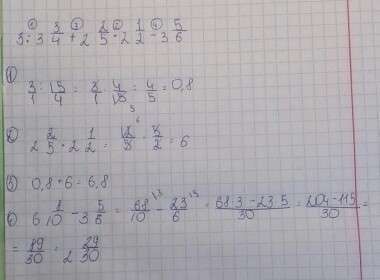 ① ③ ② ④
3 : 3 3/4 + 2 2/5 · 2 1/2 - 3 5/6
① 3/1 : 15/4 = 3/1 · 4/15 = 4/5 = 0,8
② 2 2/5 · 2 1/2 = 12/5 · 5/2 = 6
③ 0,8 + 6 = 6,8
④ 6 8/10 - 3 5/6 = 68/10 - 23/6 = 68·3 - 23·5/30 = 204 - 115/30 =
= 89/30 = 2 29/30